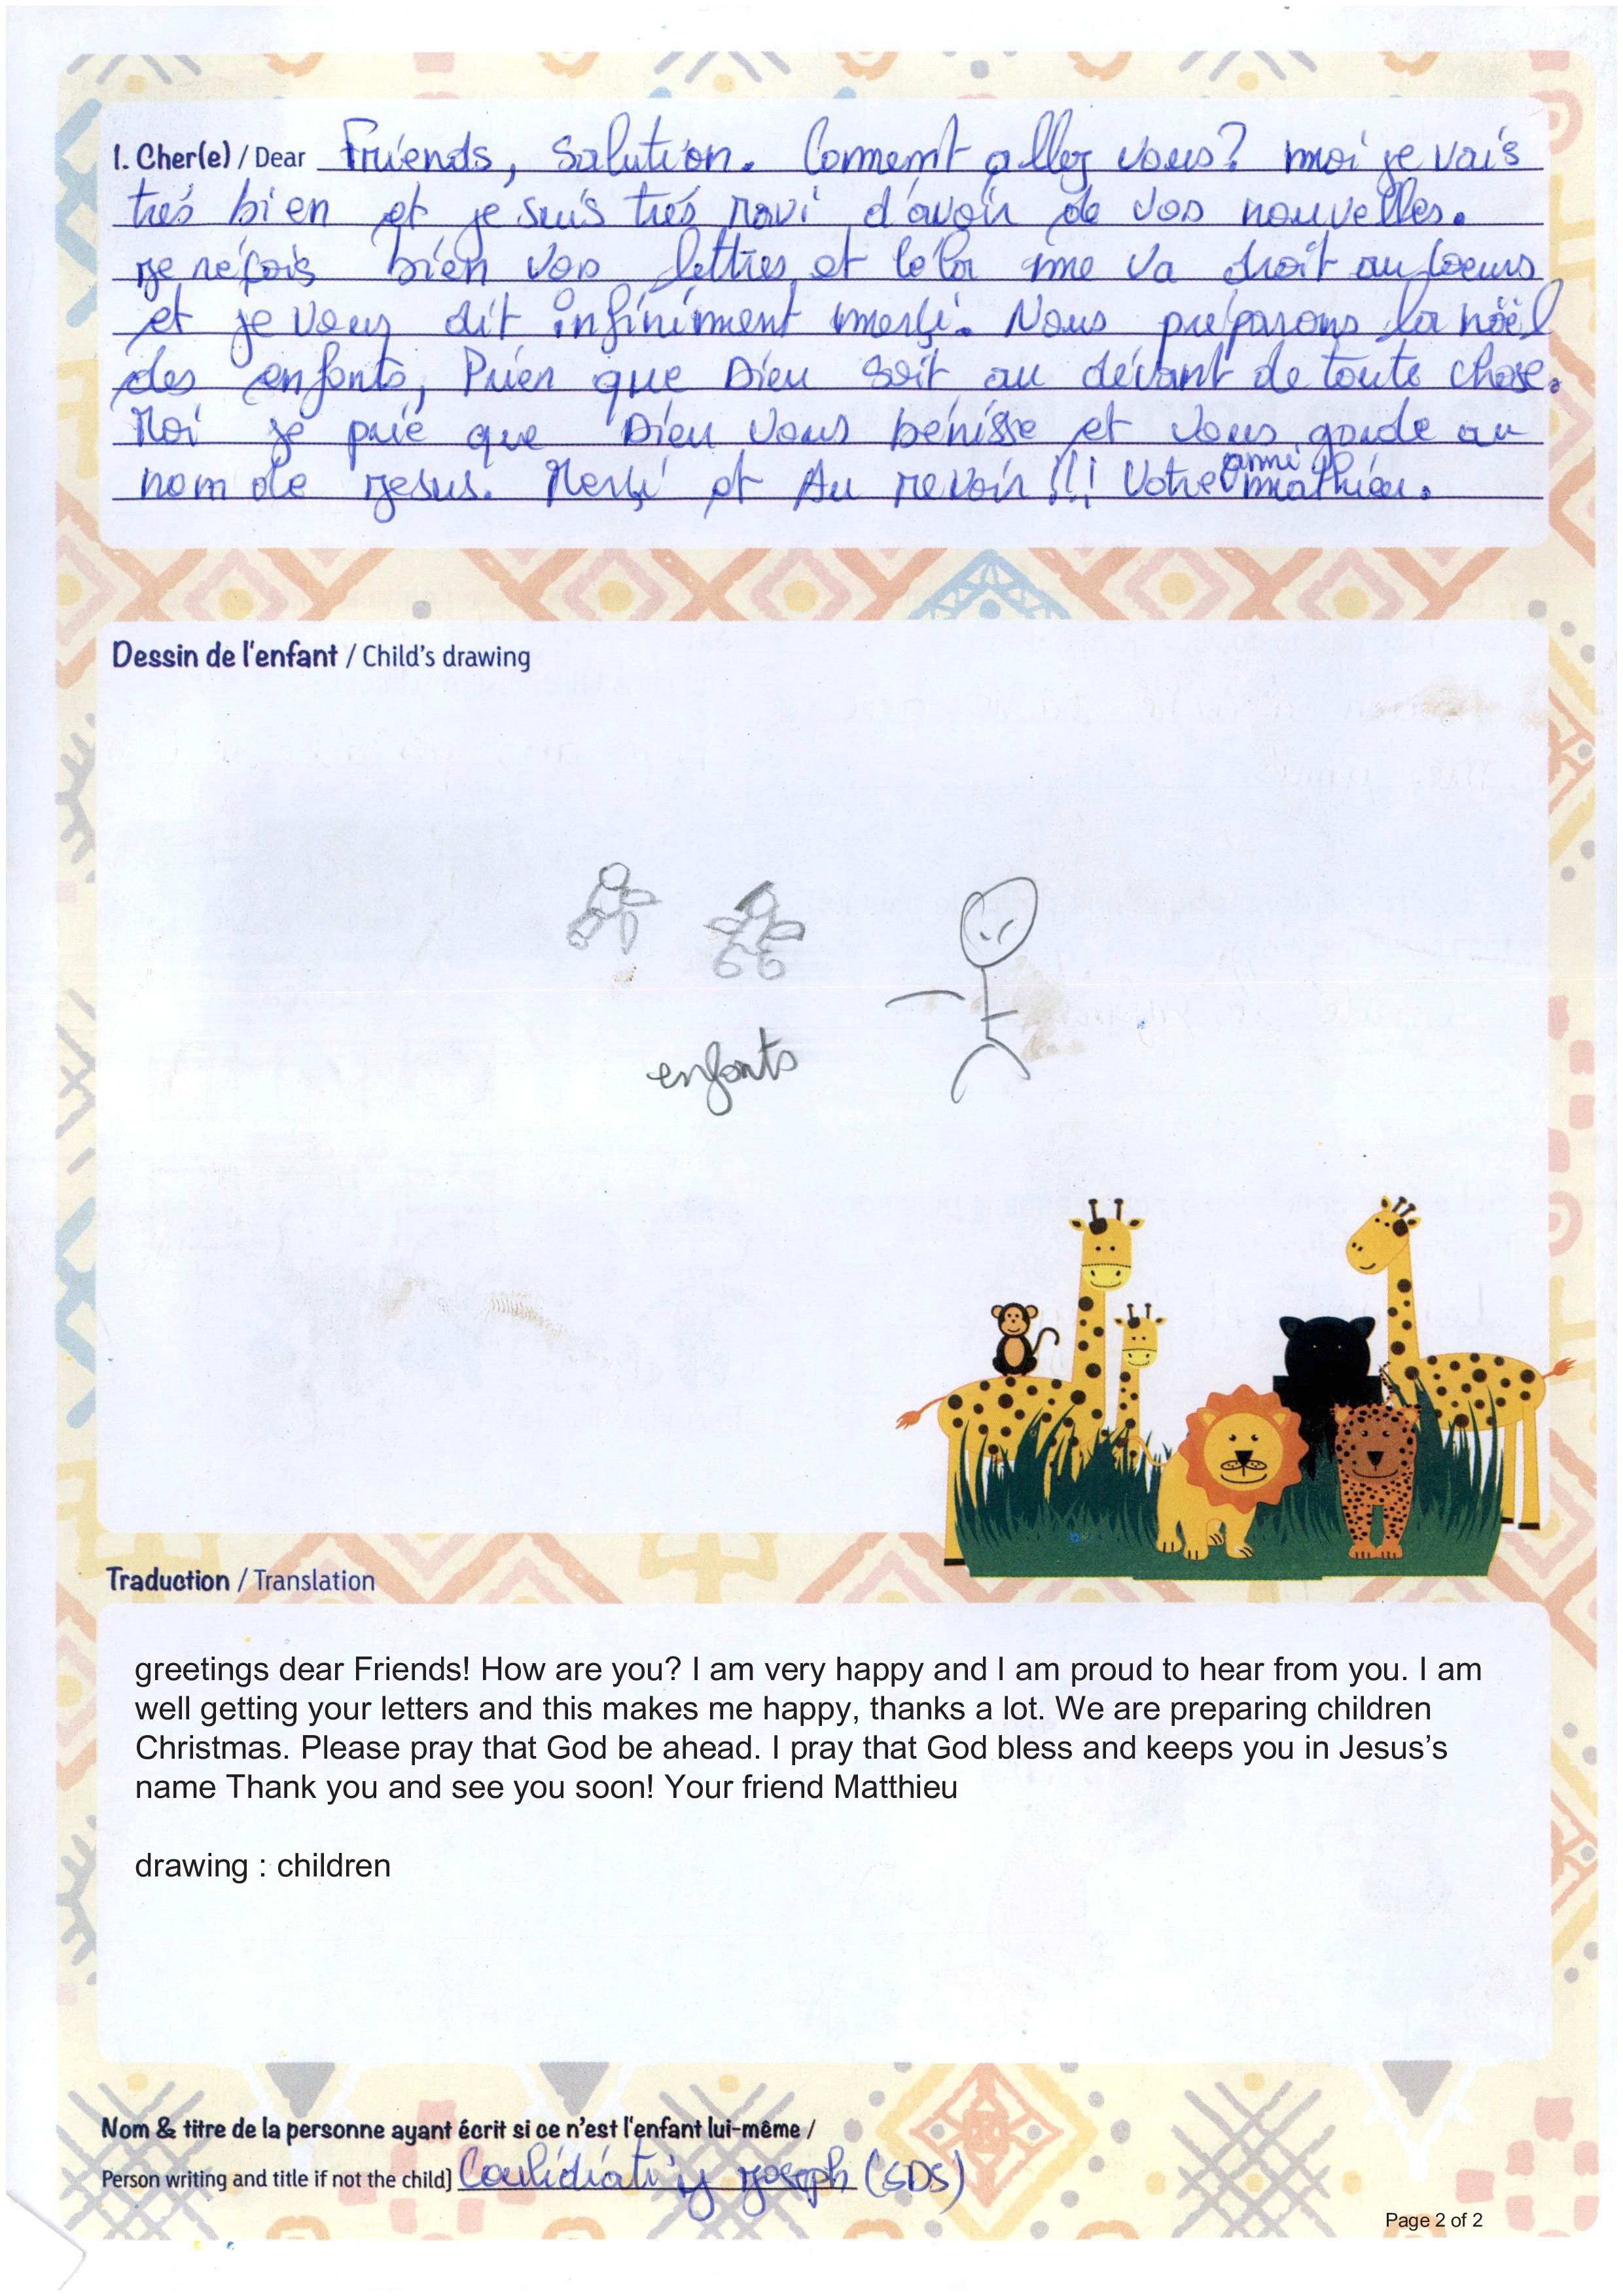 1. Cher(e) / Dear Friends, Salution. Comment allez vous? moi je vais
trés bien et je suis trés ravi d'avoir de vos nouvelles.
je réçois bien vos lettres et cela me va droit au coeurs
et je vous dit infiniment merçi. Nous préparons la noël
des enfants, Prier que Dieu soit au dévant de toute chose.
Moi je prie que Dieu vous bénisse et vous garde au
nom de jesus. Merçi et Au revoir !!! Votre ami mathieu.
Dessin de l'enfant / Child's drawing
enfants
Traduction / Translation
greetings dear Friends! How are you? I am very happy and I am proud to hear from you. I am
well getting your letters and this makes me happy, thanks a lot. We are preparing children
Christmas. Please pray that God be ahead. I pray that God bless and keeps you in Jesus’s
name Thank you and see you soon! Your friend Matthieu
drawing : children
Nom & titre de la personne ayant écrit si ce n’est l'enfant lui-même /
Person writing and title if not the child] joseph (SDS)
Page 2 of 2